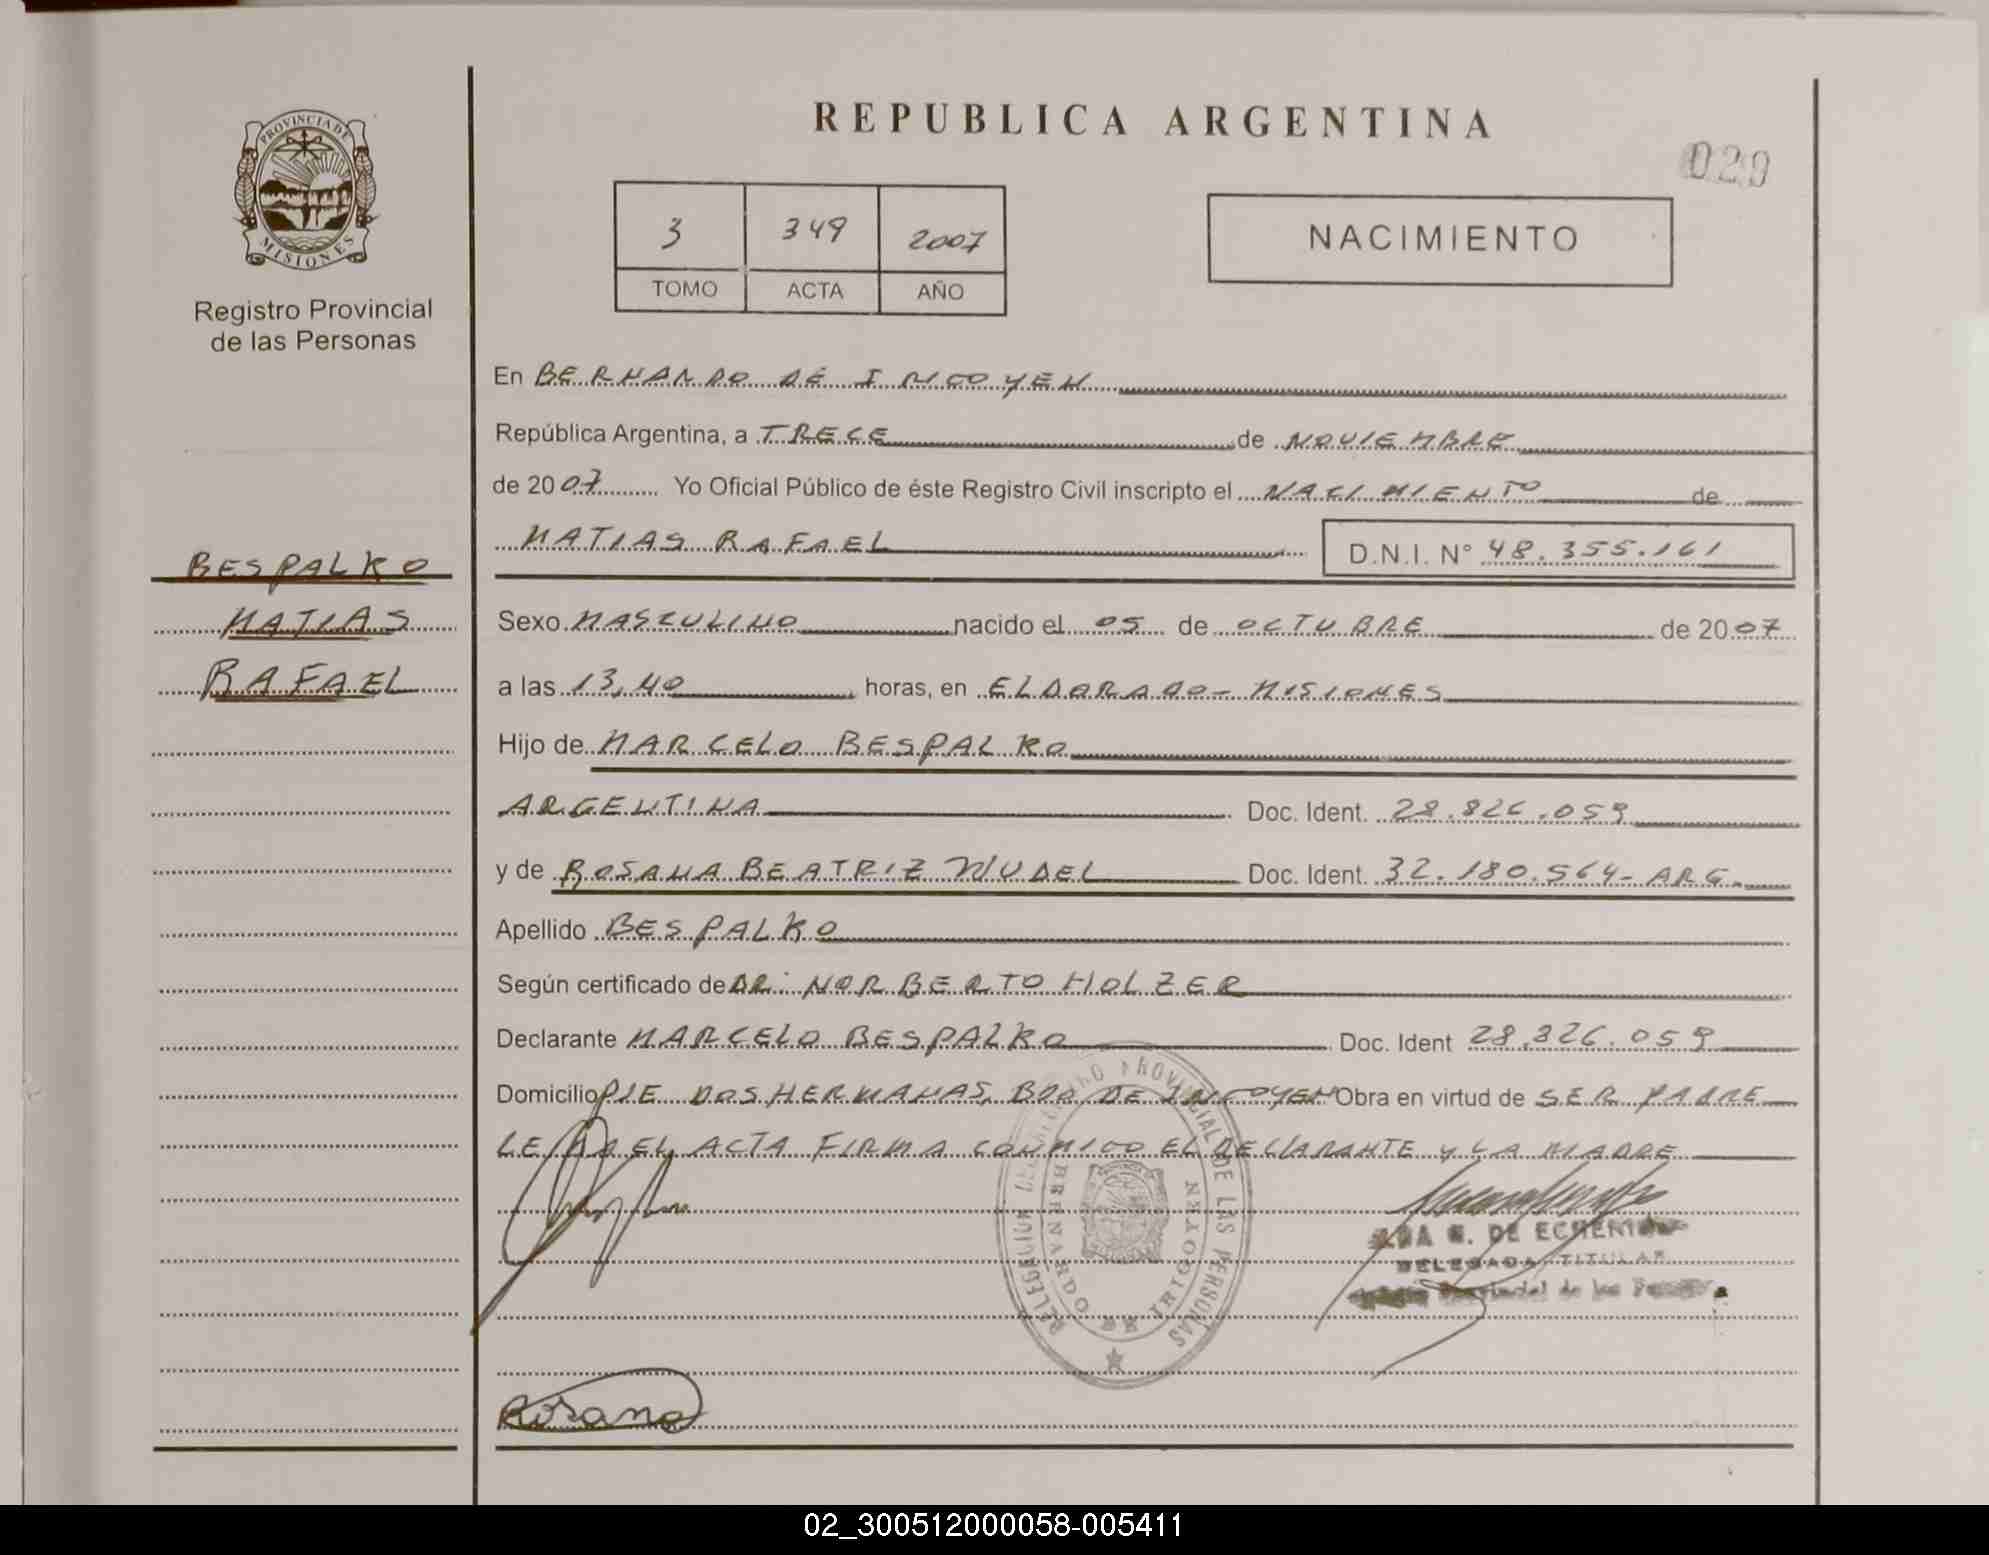 REPUBLICA ARGENTINA
020
PROVINCIA DE
MISIONES
Registro Provincial
de las Personas
3 349 2007
TOMO ACTA AÑO
NACIMIENTO
En BERNARDO DE IRIGOYEN
República Argentina, a TRECE de NOVIEMBRE
de 2007 Yo Oficial Público de éste Registro Civil inscripto el NACIMIENTO de
MATIAS RAFAEL D.N.I. N° 48.355.161
BESPALKO
MATIAS
RAFAEL
Sexo MASCULINO nacido el 05 de OCTUBRE de 2007
a las 13,40 horas, en ELDORADO - MISIONES
Hijo de MARCELO BESPALKO
ARGENTINA Doc. Ident. 28.826.059
y de ROSANA BEATRIZ Doc. Ident. 32.180.564- ARG.
Apellido BESPALKO
Según certificado de DR: NORBERTO HOLZER
Declarante MARCELO BESPALKO Doc. Ident 28.826.059
Domicilio PJE DOS HERMANAS, BDO DE IRIGOYEN Obra en virtud de SER PADRE
LEIDA EL ACTA FIRMA CONMIGO EL DECLARANTE Y LA MADRE
PROVINCIAL DE LAS PERSONAS
BERNARDO DE IRIGOYEN
DE
DELEGADA TITULAR
Provincial de las
Rosana
02_300512000058-005411